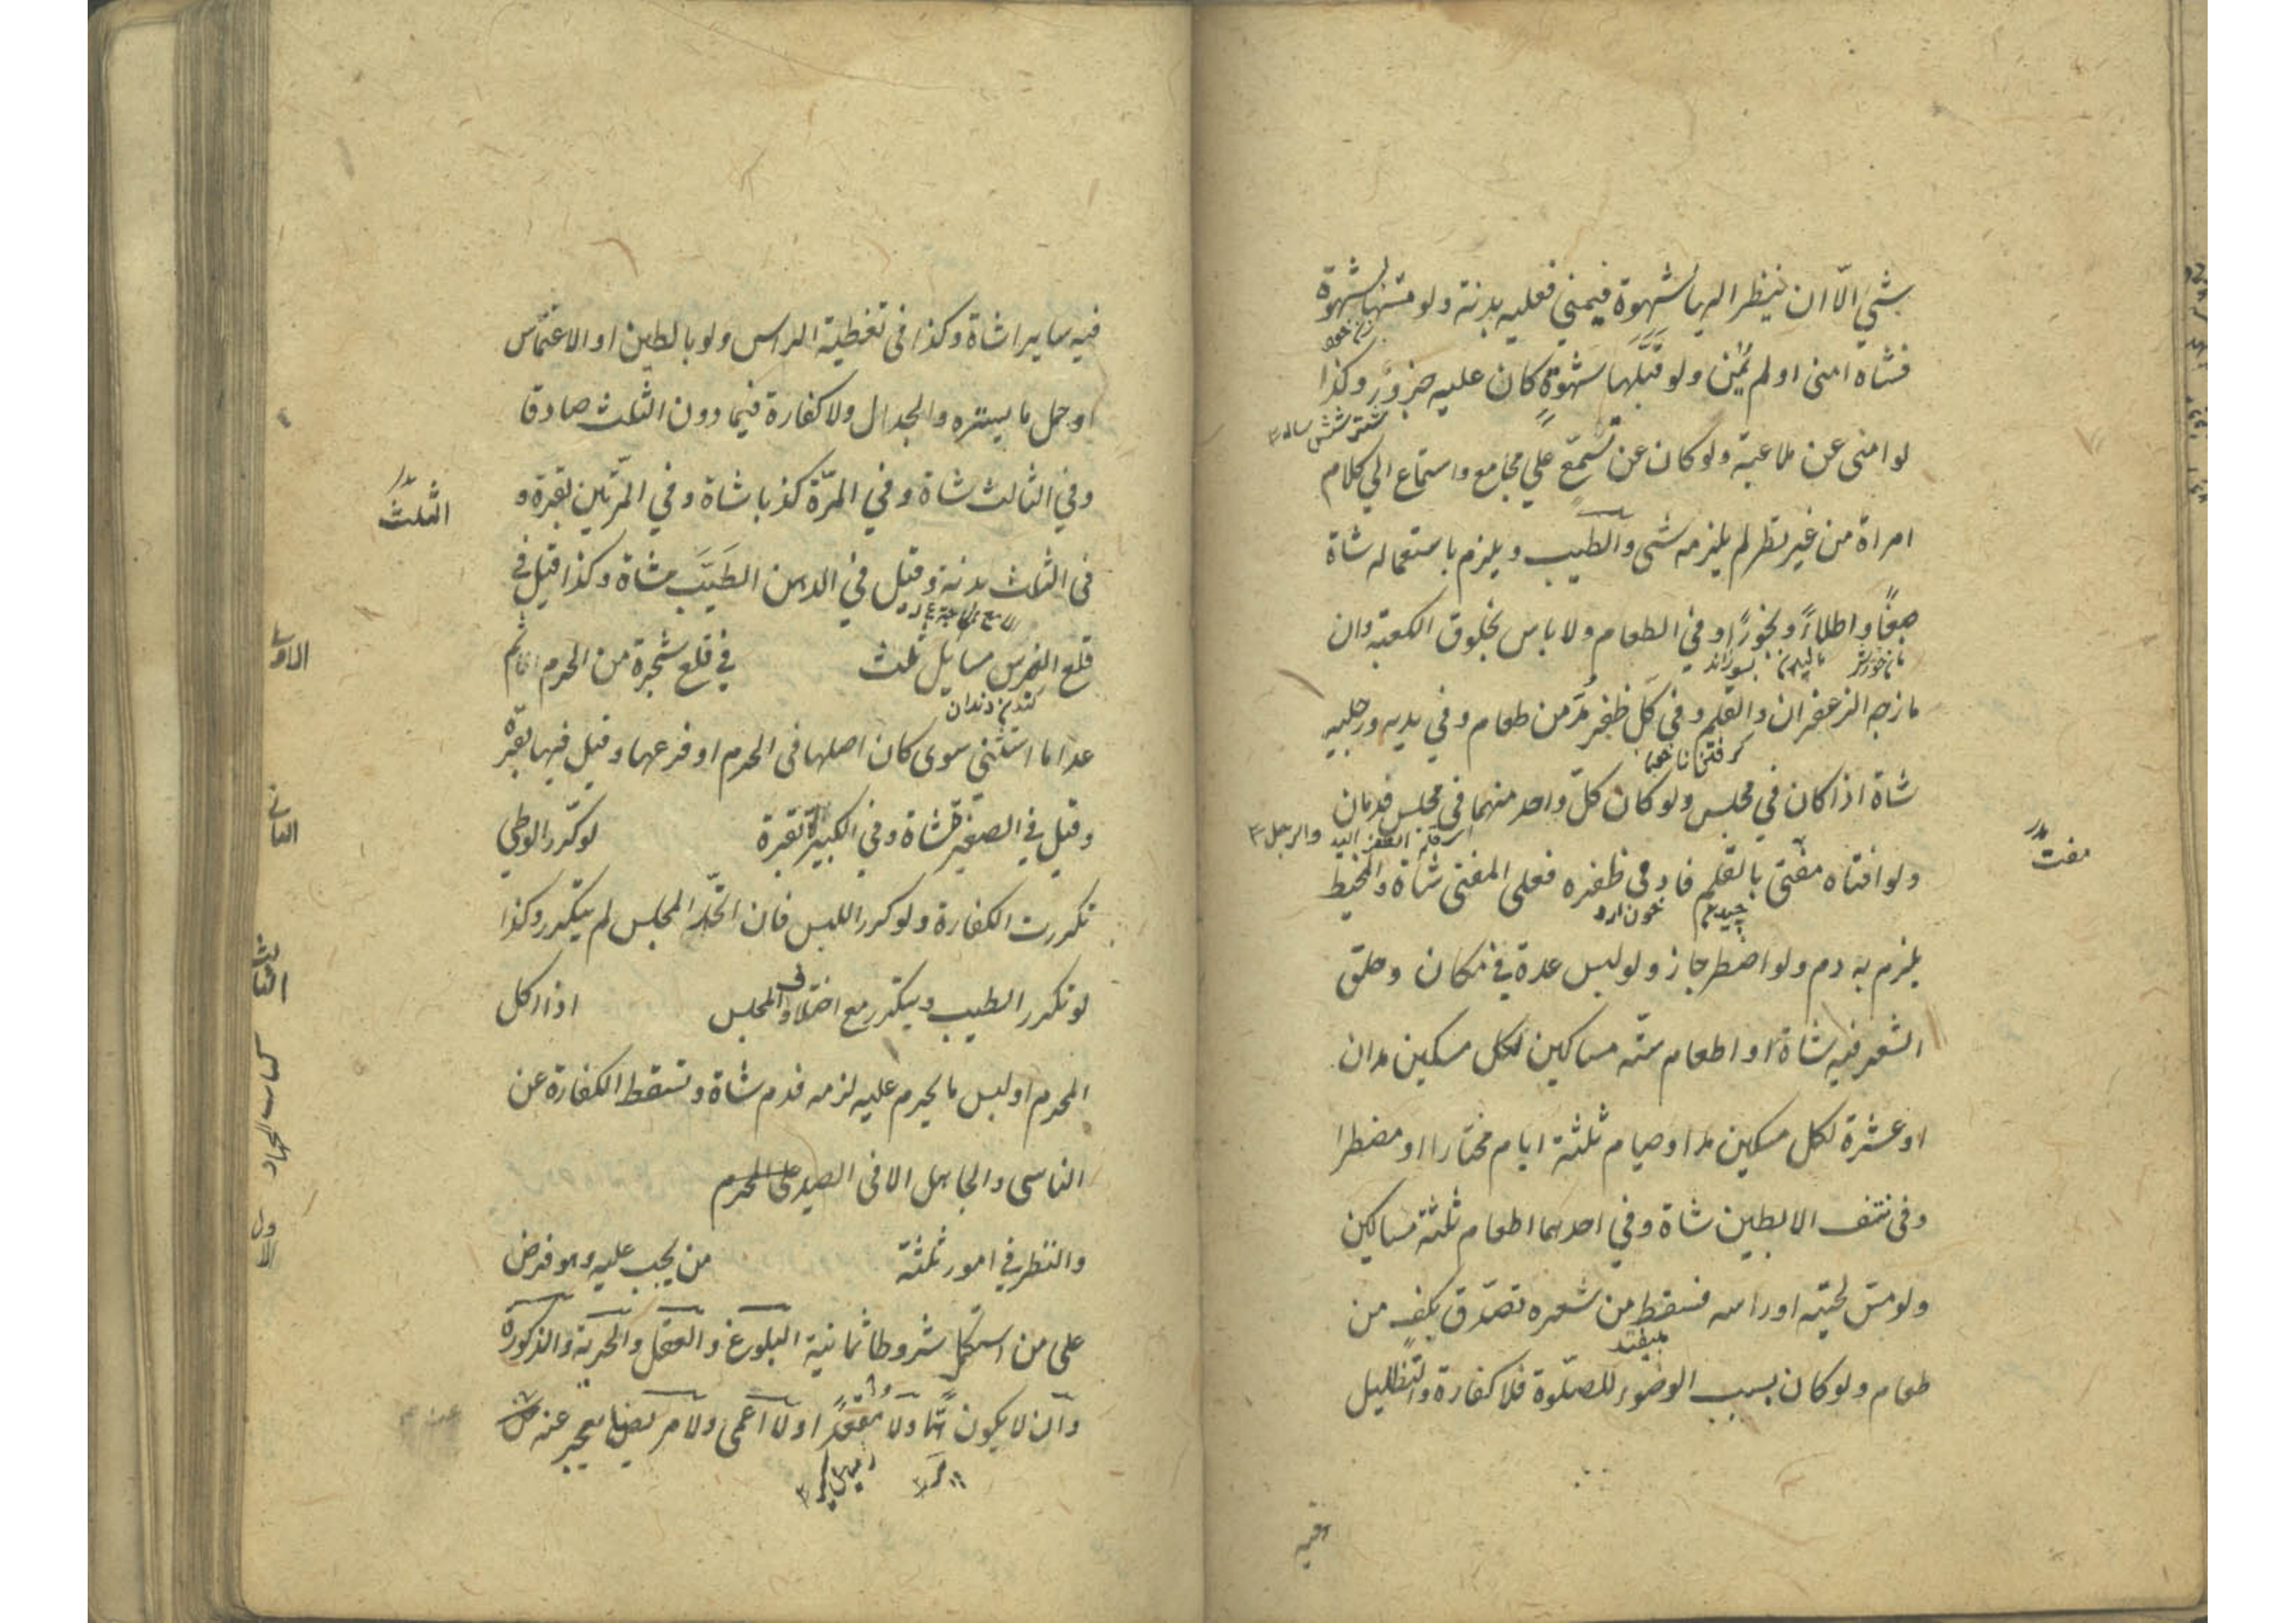 بشئ الّا ان ينظر اليها بشهوة فيمني فعليه بدنة ولو مسّها بشهوة
فشاة امنى او لم يُمنِ ولو قَبَّلَها بشهوةٍ كان عليه جزورٌ وكذا
شتر شش ساله
لو امنى عن ملاعبة ولو كان عن تسمّع علي مجامع واستماع الي كلام
امراة من غير نظر لم يلزمه شئ والطيب ويلزم باستعماله شاة
صبغًا واطلاءً وبخورًا وفي الطعام ولا باس بخلوق الكعبة وان
نان خورش ماليدن
مازجه الزعفران والقلم وفي كل ظفر مدّ من طعام وفي يديه ورجليه
گرفتن ناخن
شاة اذا كان في مجلس ولو كان كلّ واحد منهما في مجلس فدمان
والرجل
ولو افتاه مفتى بالقلم فادمى ظفره فعلى المفتى شاة والمخيط
مفت
چيدن
يلزم به دم ولو اضطر جاز ولو لبس عدة في مكان وحلق
الشعر فيه شاة او اطعام ستّة مساكين لكل مسكين مدان
او عشرة لكل مسكين مد او صيام ثلثة ايام مختارا او مضطرا
وفى نتف الابطين شاة وفي احدهما اطعام ثلثة مساكين
ولو مسّ لحيته او راسه فسقط من شعره تصدّق بكفٍ من
بيفتد
طعام ولو كان بسبب الوضوء للصلوة فلا كفارة والتظليل
فيه سايرا شاة وكذا فى تغطية الراس ولو بالطين او الاغتماس
او حمل ما يستره والجدال ولا كفارة فيما دون الثلث صادقا
وفي الثالث شاة وفي المرّة كذبا شاة وفي المرّتين بقرة و
الثلث
فى الثلث بدنة وقيل في الدهن الطَيَّب شاة وكذا قيل في
قلع الضرس مسايل ثلث في قلع شجرة من الحرم
الاول
كندن دندان
عدا ما استثني سوى كان اصلها فى الحرم او فرعها وقيل فيها بقرة
وقيل في الصغيرة شاة وفي الكبيرة بقرة لو كرّر الوطي
الثاني
تكررت الكفارة ولو كرر اللبس فان اتّحد المجلس لم يتكرر وكذا
لو تكرر الطيب ويتكرر مع اختلاف المجلس اذا اكل
الثالث
المحرم او لبس ما يحرم عليه لزمه فدم شاة وتسقط الكفارة عن
الناسى والجاهل الا فى الصيد
كتاب الجهاد
والنظر في امور ثلثة من يجب عليه وهو فرض
الاول
على من استكمل شروطا ثمانية البلوغ والعقل والحرية والذكورة
وان لا يكون همًّا ولا مقعدًا ولا اعمى ولا مريضا يعجز عنه